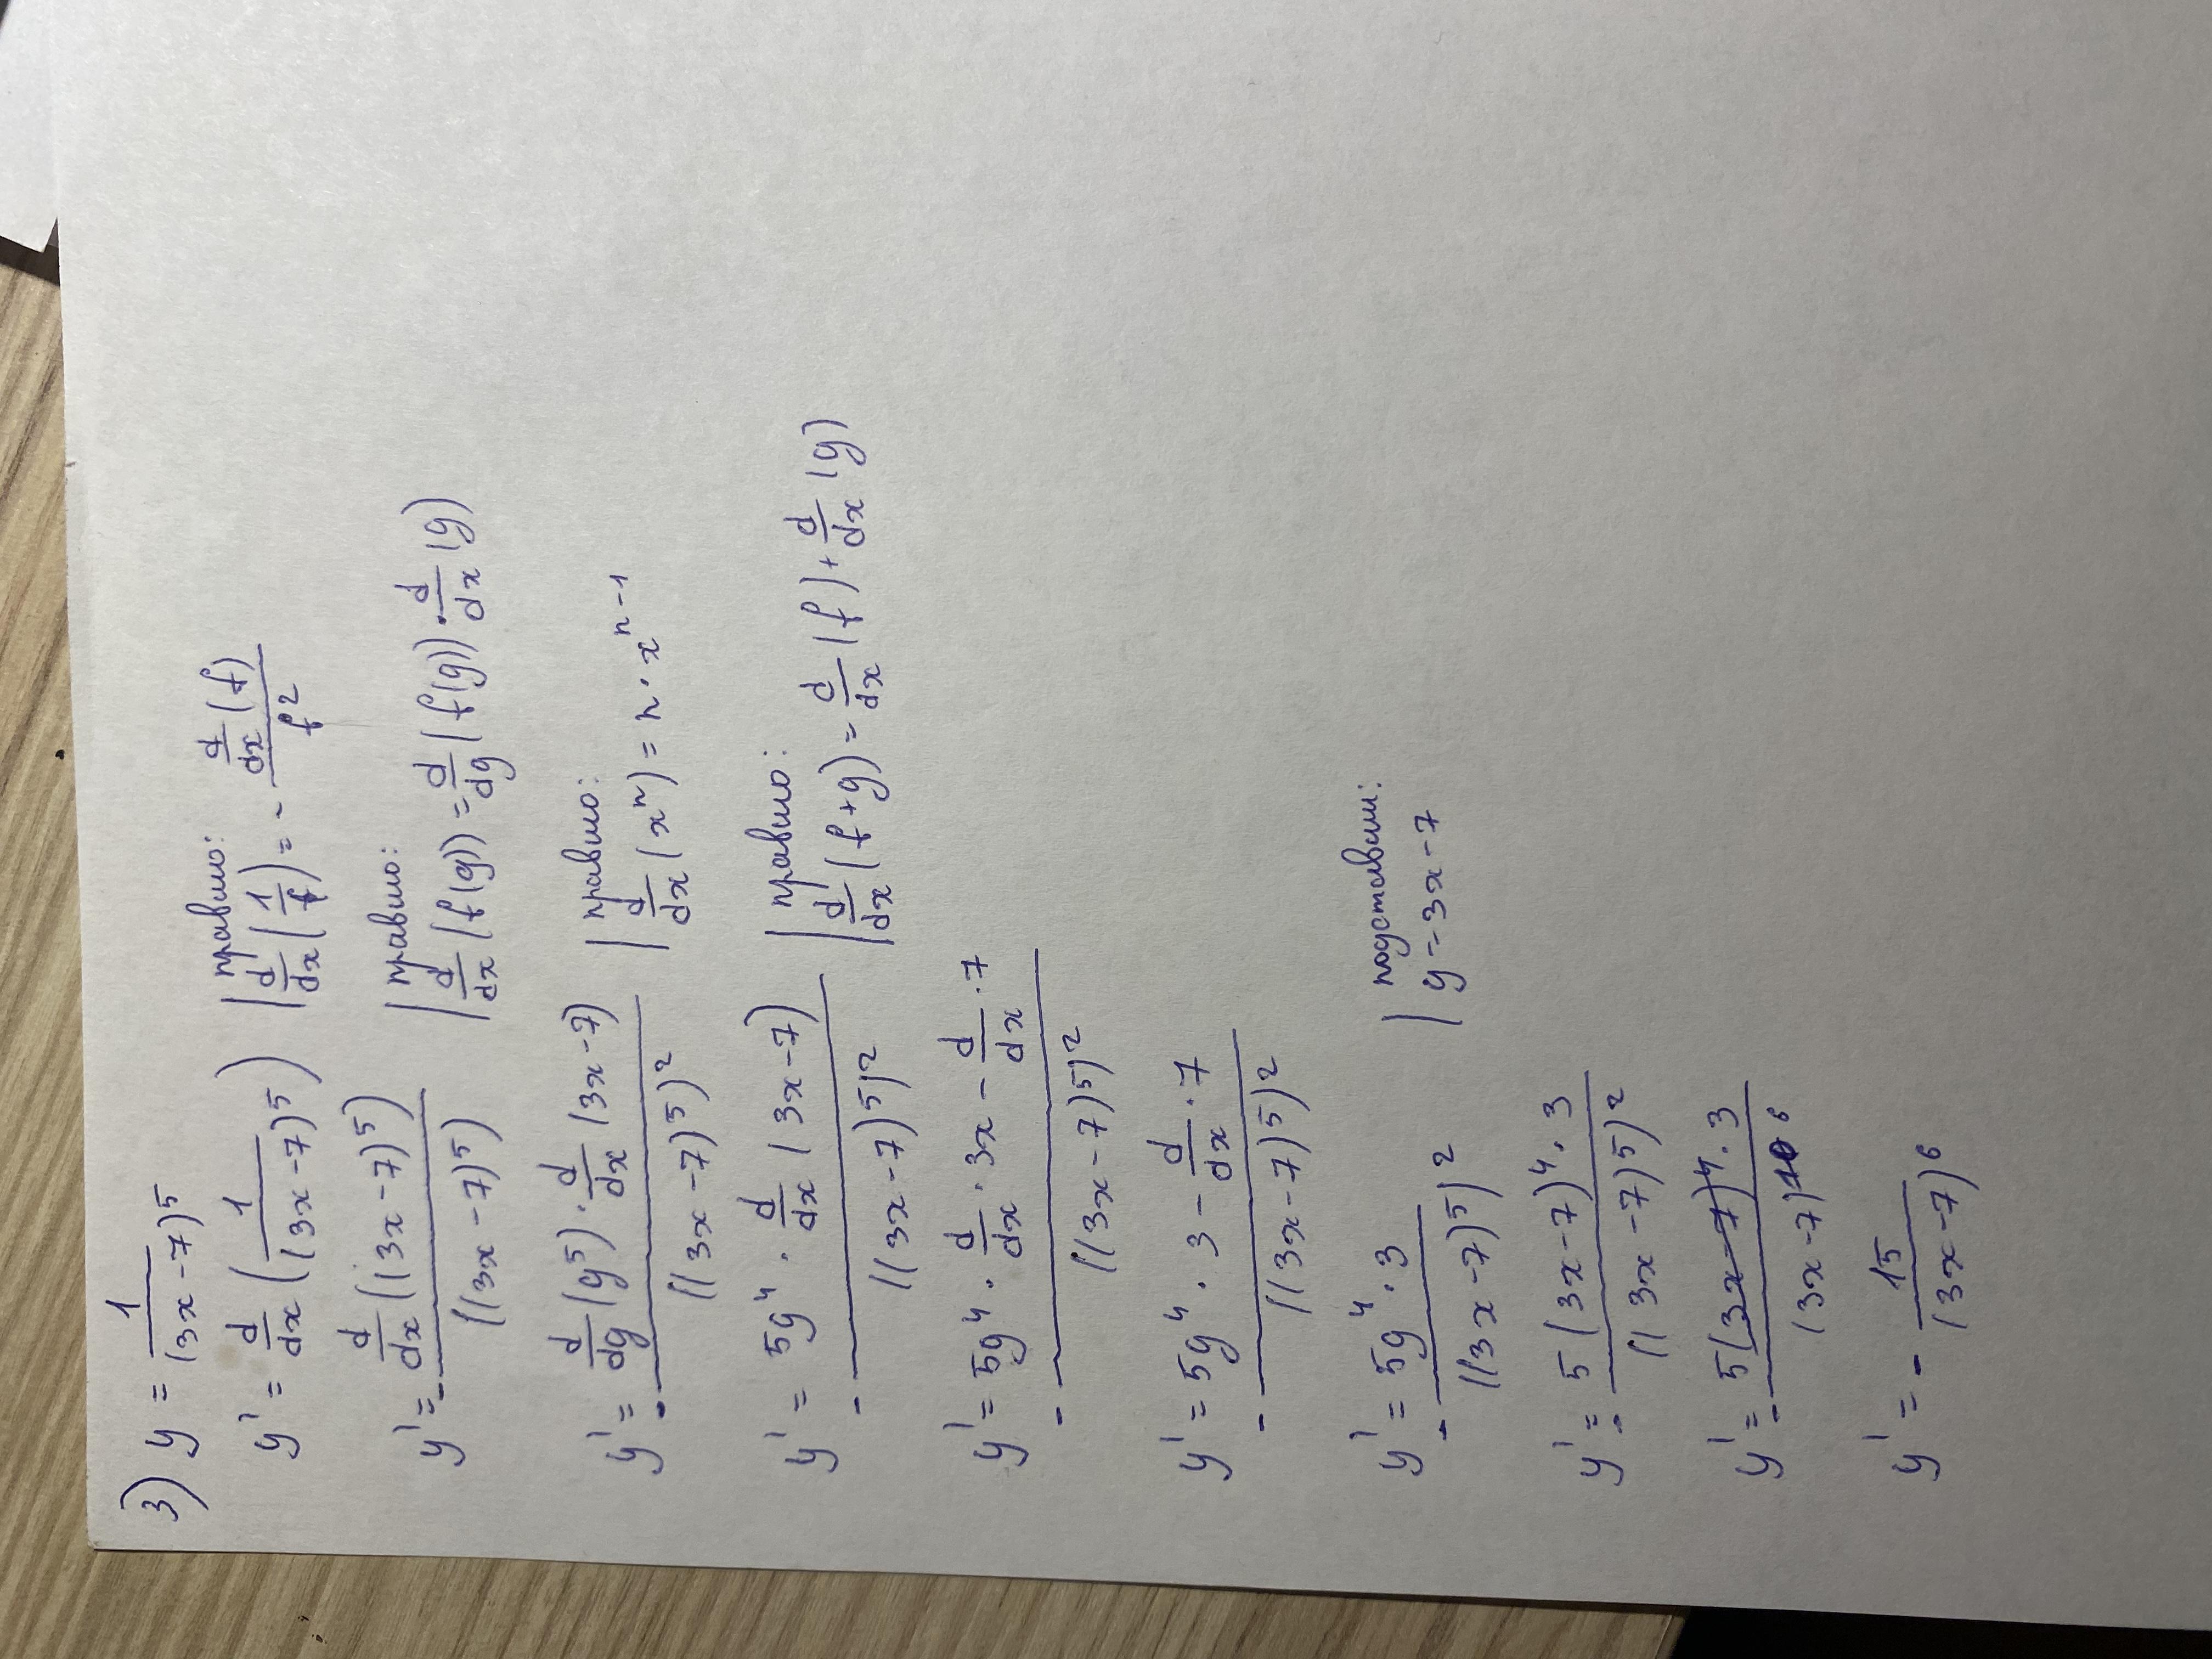 3) y = 1/(3x-7)^5
y' = d/dx (1/(3x-7)^5) | правило: d/dx (1/f) = - d/dx (f) / f^2
y' = - d/dx ((3x-7)^5) / ((3x-7)^5) | правило: d/dx (f(g)) = d/dg (f(g)) · d/dx (g)
y' = - d/dg (g^5) · d/dx (3x-7) / ((3x-7)^5)^2 | правило: d/dx (x^n) = n · x^n-1
y' = - 5g^4 · d/dx (3x-7) / ((3x-7)^5)^2 | правило: d/dx (f+g) = d/dx (f) + d/dx (g)
y' = - 5g^4 · d/dx · 3x - d/dx · 7 / ((3x-7)^5)^2
y' = - 5g^4 · 3 - d/dx · 7 / ((3x-7)^5)^2
y' = - 5g^4 · 3 / ((3x-7)^5)^2 | подставим: g = 3x-7
y' = - 5(3x-7)^4 · 3 / ((3x-7)^5)^2
y' = - 5(3x-7)^4 · 3 / (3x-7)^10 6
y' = - 15/(3x-7)^6